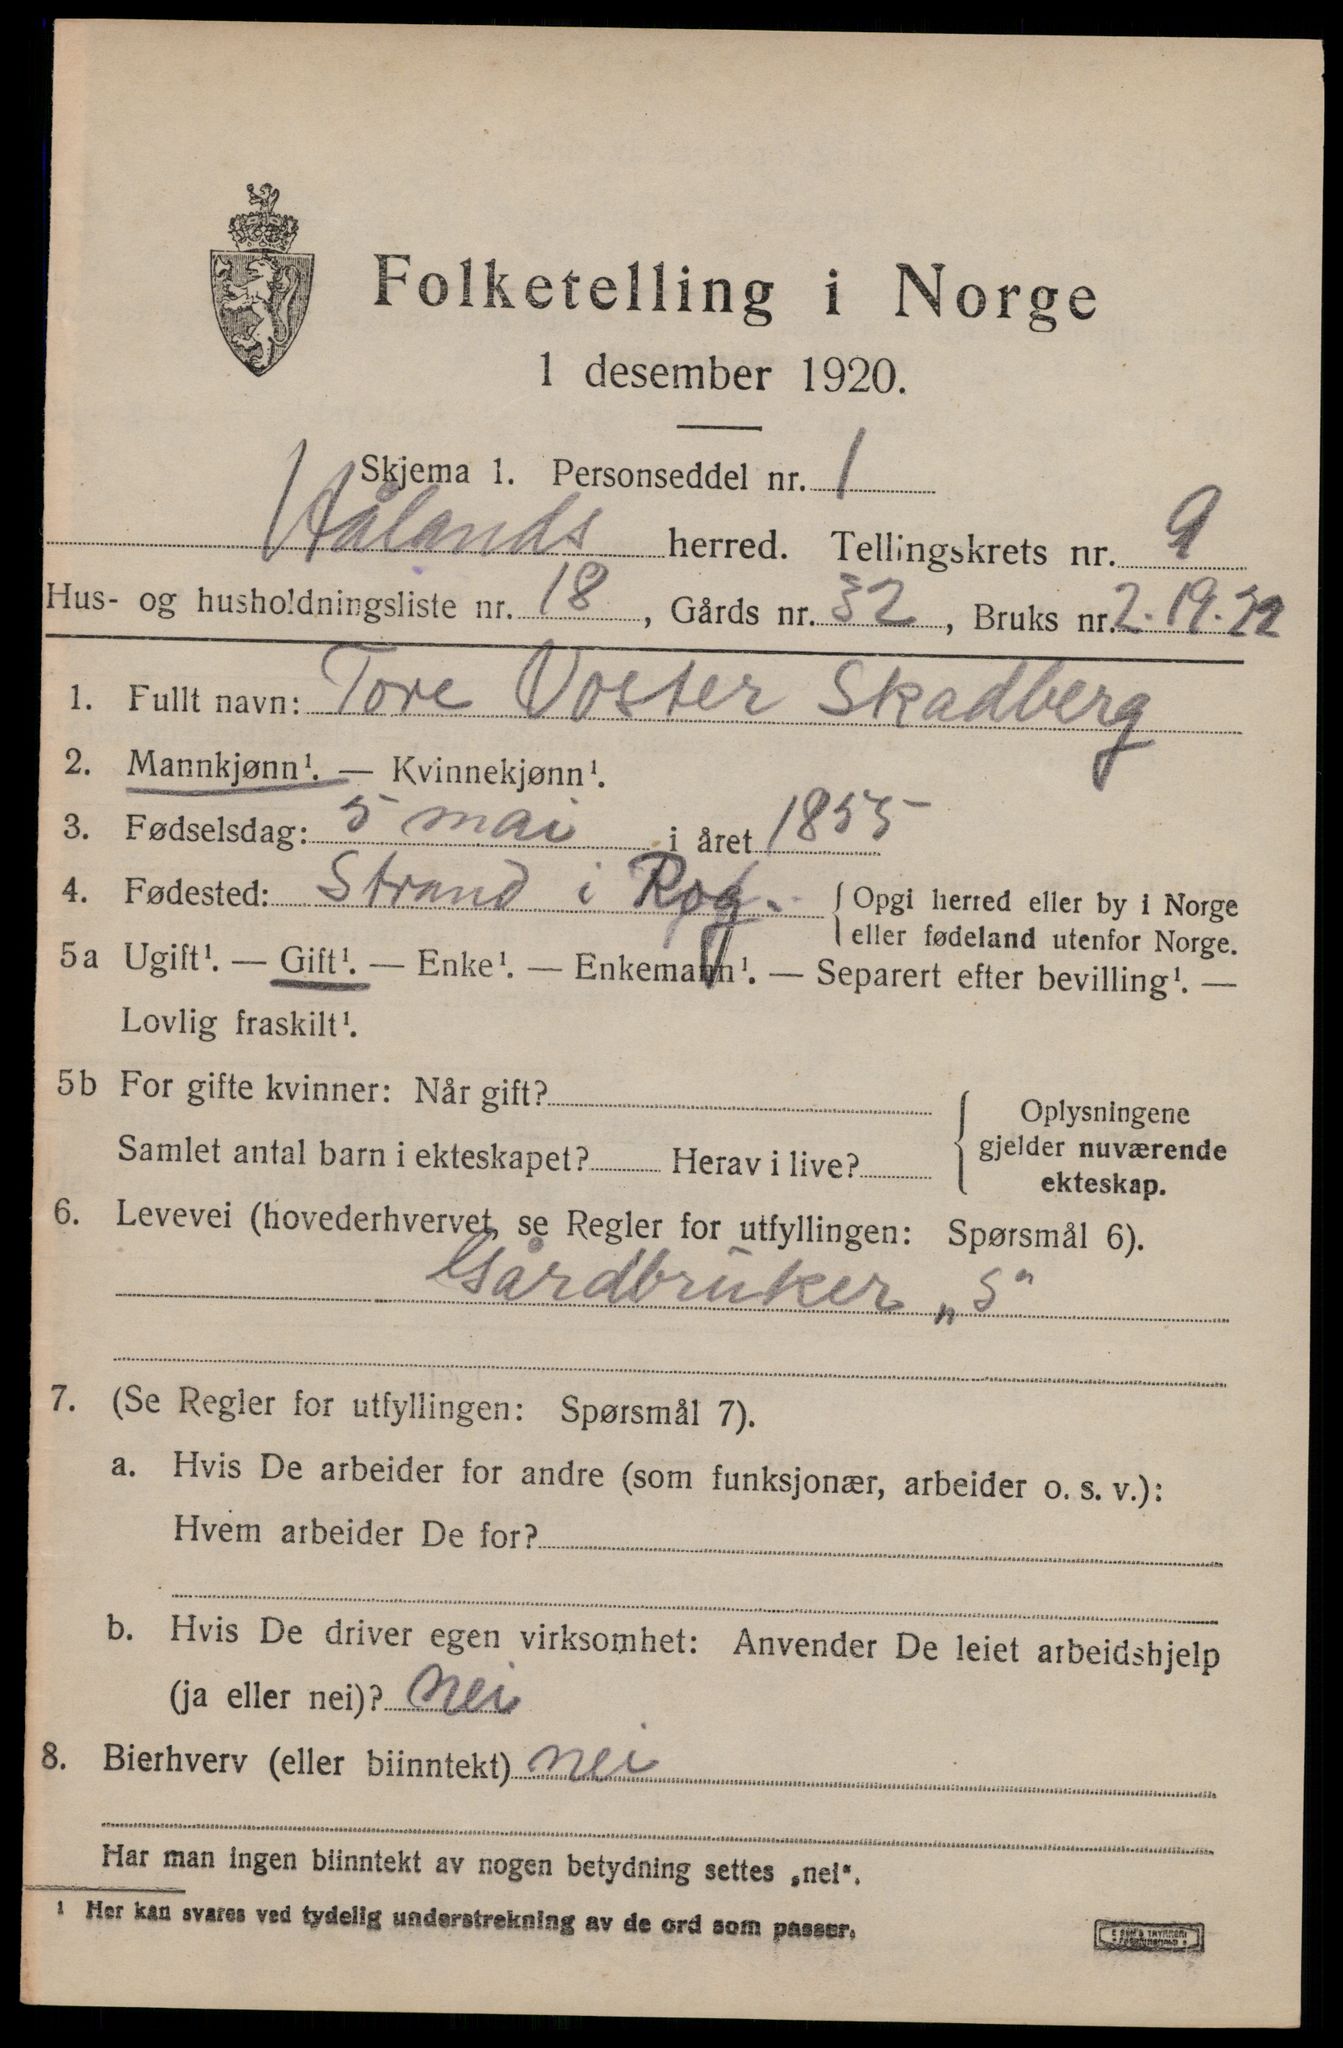 Folketelling i Norge
1 desember 1920.
Skjema 1. Personseddel nr. 1
Hålands herred. Tellingskrets nr. 9
Hus- og husholdningsliste nr. 18, Gårds nr. 32, Bruks nr. 2.19.22
1. Fullt navn: Tore Voster Skadberg
2. Mannkjønn¹. — Kvinnekjønn¹.
3. Fødselsdag: 5 mai i året 1855
4. Fødested: Strand i Rog. Opgi herred eller by i Norge
eller fødeland utenfor Norge.
5a Ugift¹. — Gift¹. — Enke¹. — Enkemann¹. — Separert efter bevilling¹. —
Lovlig fraskilt¹.
5b For gifte kvinner: Når gift?
Samlet antal barn i ekteskapet? Herav i live?
Oplysningene
gjelder nuværende
ekteskap.
6. Levevei (hovederhvervet, se Regler for utfyllingen: Spørsmål 6).
Gårdbruker „S"
7. (Se Regler for utfyllingen: Spørsmål 7).
a. Hvis De arbeider for andre (som funksjonær, arbeider o. s. v.):
Hvem arbeider De for?
b. Hvis De driver egen virksomhet: Anvender De leiet arbeidshjelp
(ja eller nei)? nei
8. Bierhverv (eller biinntekt) nei
Har man ingen biinntekt av nogen betydning settes „nei".
¹ Her kan svares ved tydelig understrekning av de ord som passer.